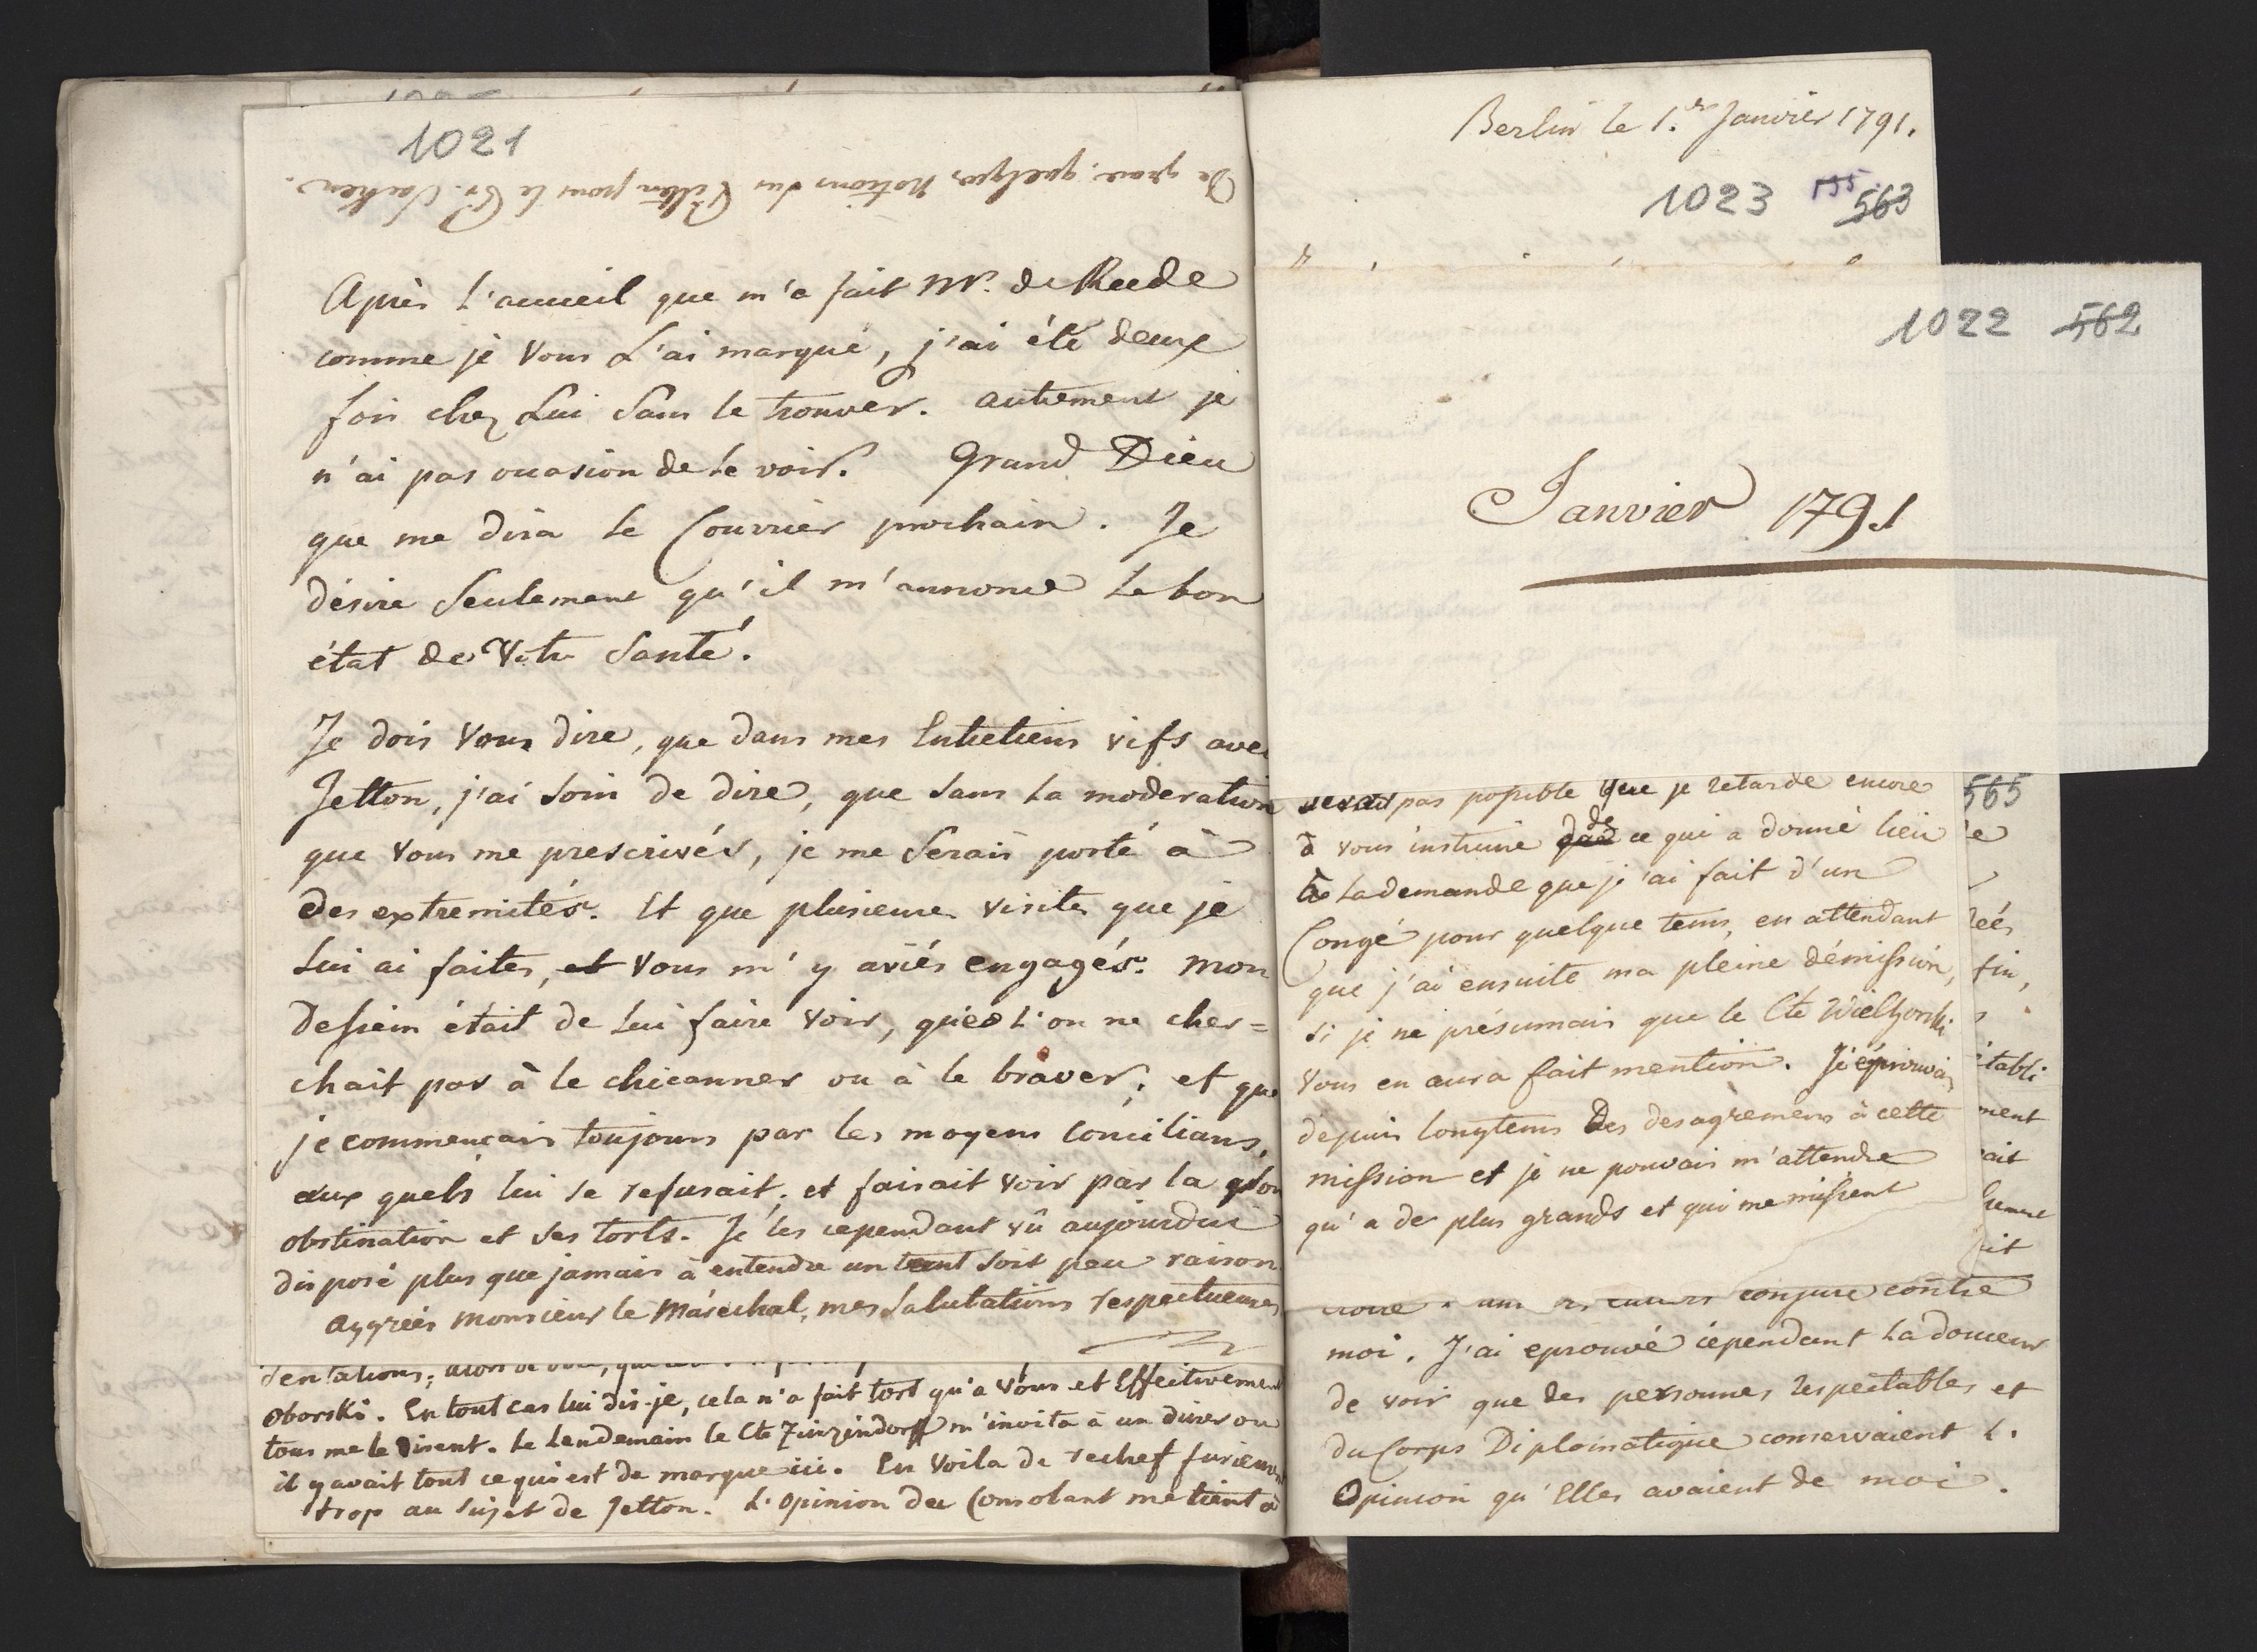 1021
De grace, quelques notions sur Pilten pour le Cte. Sacken.
Après L'accueil que m'a fait Mr. de Reede
comme je Vous L'ai marqué, j'ai été deux
fois chez Lui Sans le trouver. autrement je
n'ai pas occasion de Le voir. Grand Dieu
que me dira le Courrier prochain. Je
désire Seulement qu'il m'annonce Le bon
état de Votre Santé.
Je dois Vous dire, que dans mes Entretiens vifs avec
Jetton, j'ai soin de dire, que sans la moderation
que Vous me prescrivés, je me Serais porté à
des extremités. Et que plusieures visites que je
Lui ai faites, et Vous m'y aviés engagés. Mon
dessein était de Lui faire Voir, que L'on ne cher=
chait pas à le chicanner ou à le braver; et que
je commençais toujours par les moyens Concilians,
aux quels lui se refusait, et faisait voir par la
obstination et ses torts. Je l'es cependant vû aujourdui
disposé plus que jamais à entendre un tant soit peu raison
aggreés Monsieur le Maréchal, mes Salutations respectueuses
Oborski. En tout cas lui dis-je, cela n'a fait tort qu'a Vous et Effectivement
tous me le disent. Le Lendemain le Cte Zinzindorff m'invita à un diner ou
il y avait tout ce qui est de marque ici. En Voila de rechef
trop au sujet de Jetton. L'opinion du Consolant me tient à
Berlin le 1.er Janvier 1791.
1023 563
1022 562
Janvier 1791
565
pas possible que je retarde encore
à vous instruire de ce qui a donné lieu
à La demande que j'ai fait d'un
Congé pour quelque tems, en attendant
que j'ai ensuite ma pleine démission,
si je ne présumais que le Cte Wielhorski
Vous en aura fait mention. J'éprouvais
depuis longtems des desagremens à cette
mission et je ne pouvais m'attendre
qu'a de plus grands et qui me missent
conjuré contre
moi. J'ai eprouvé cependant La douceur
de voir que des personnes respectables et
du Corps Diplomatique conservaient L.
Opinion qu'Elles avaient de moi.